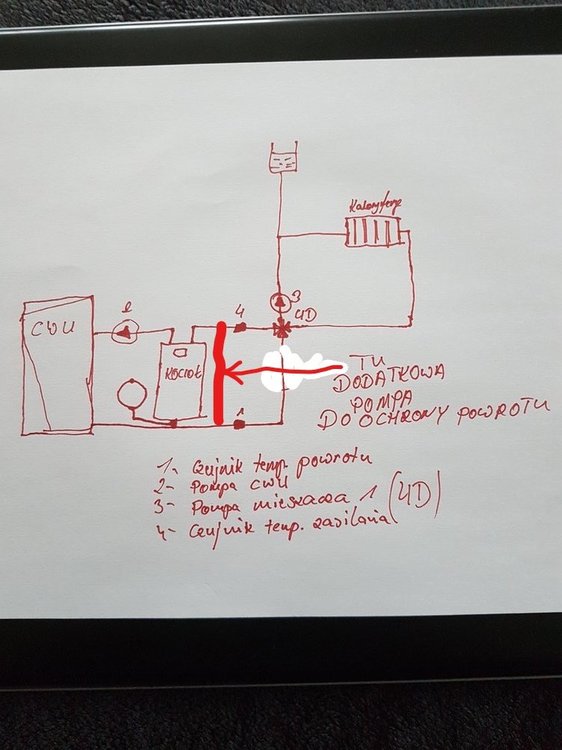 Kaloryfery
3
4
4D
2
CWU
KOCIOŁ
TU
DODATKOWA
POMPA
DO OCHRONY POWROTU
1
1- Czujnik temp. powrotu
2- Pompa CWU
3- Pompa mieszacza 1 (4D)
4- Czujnik temp. zasilania